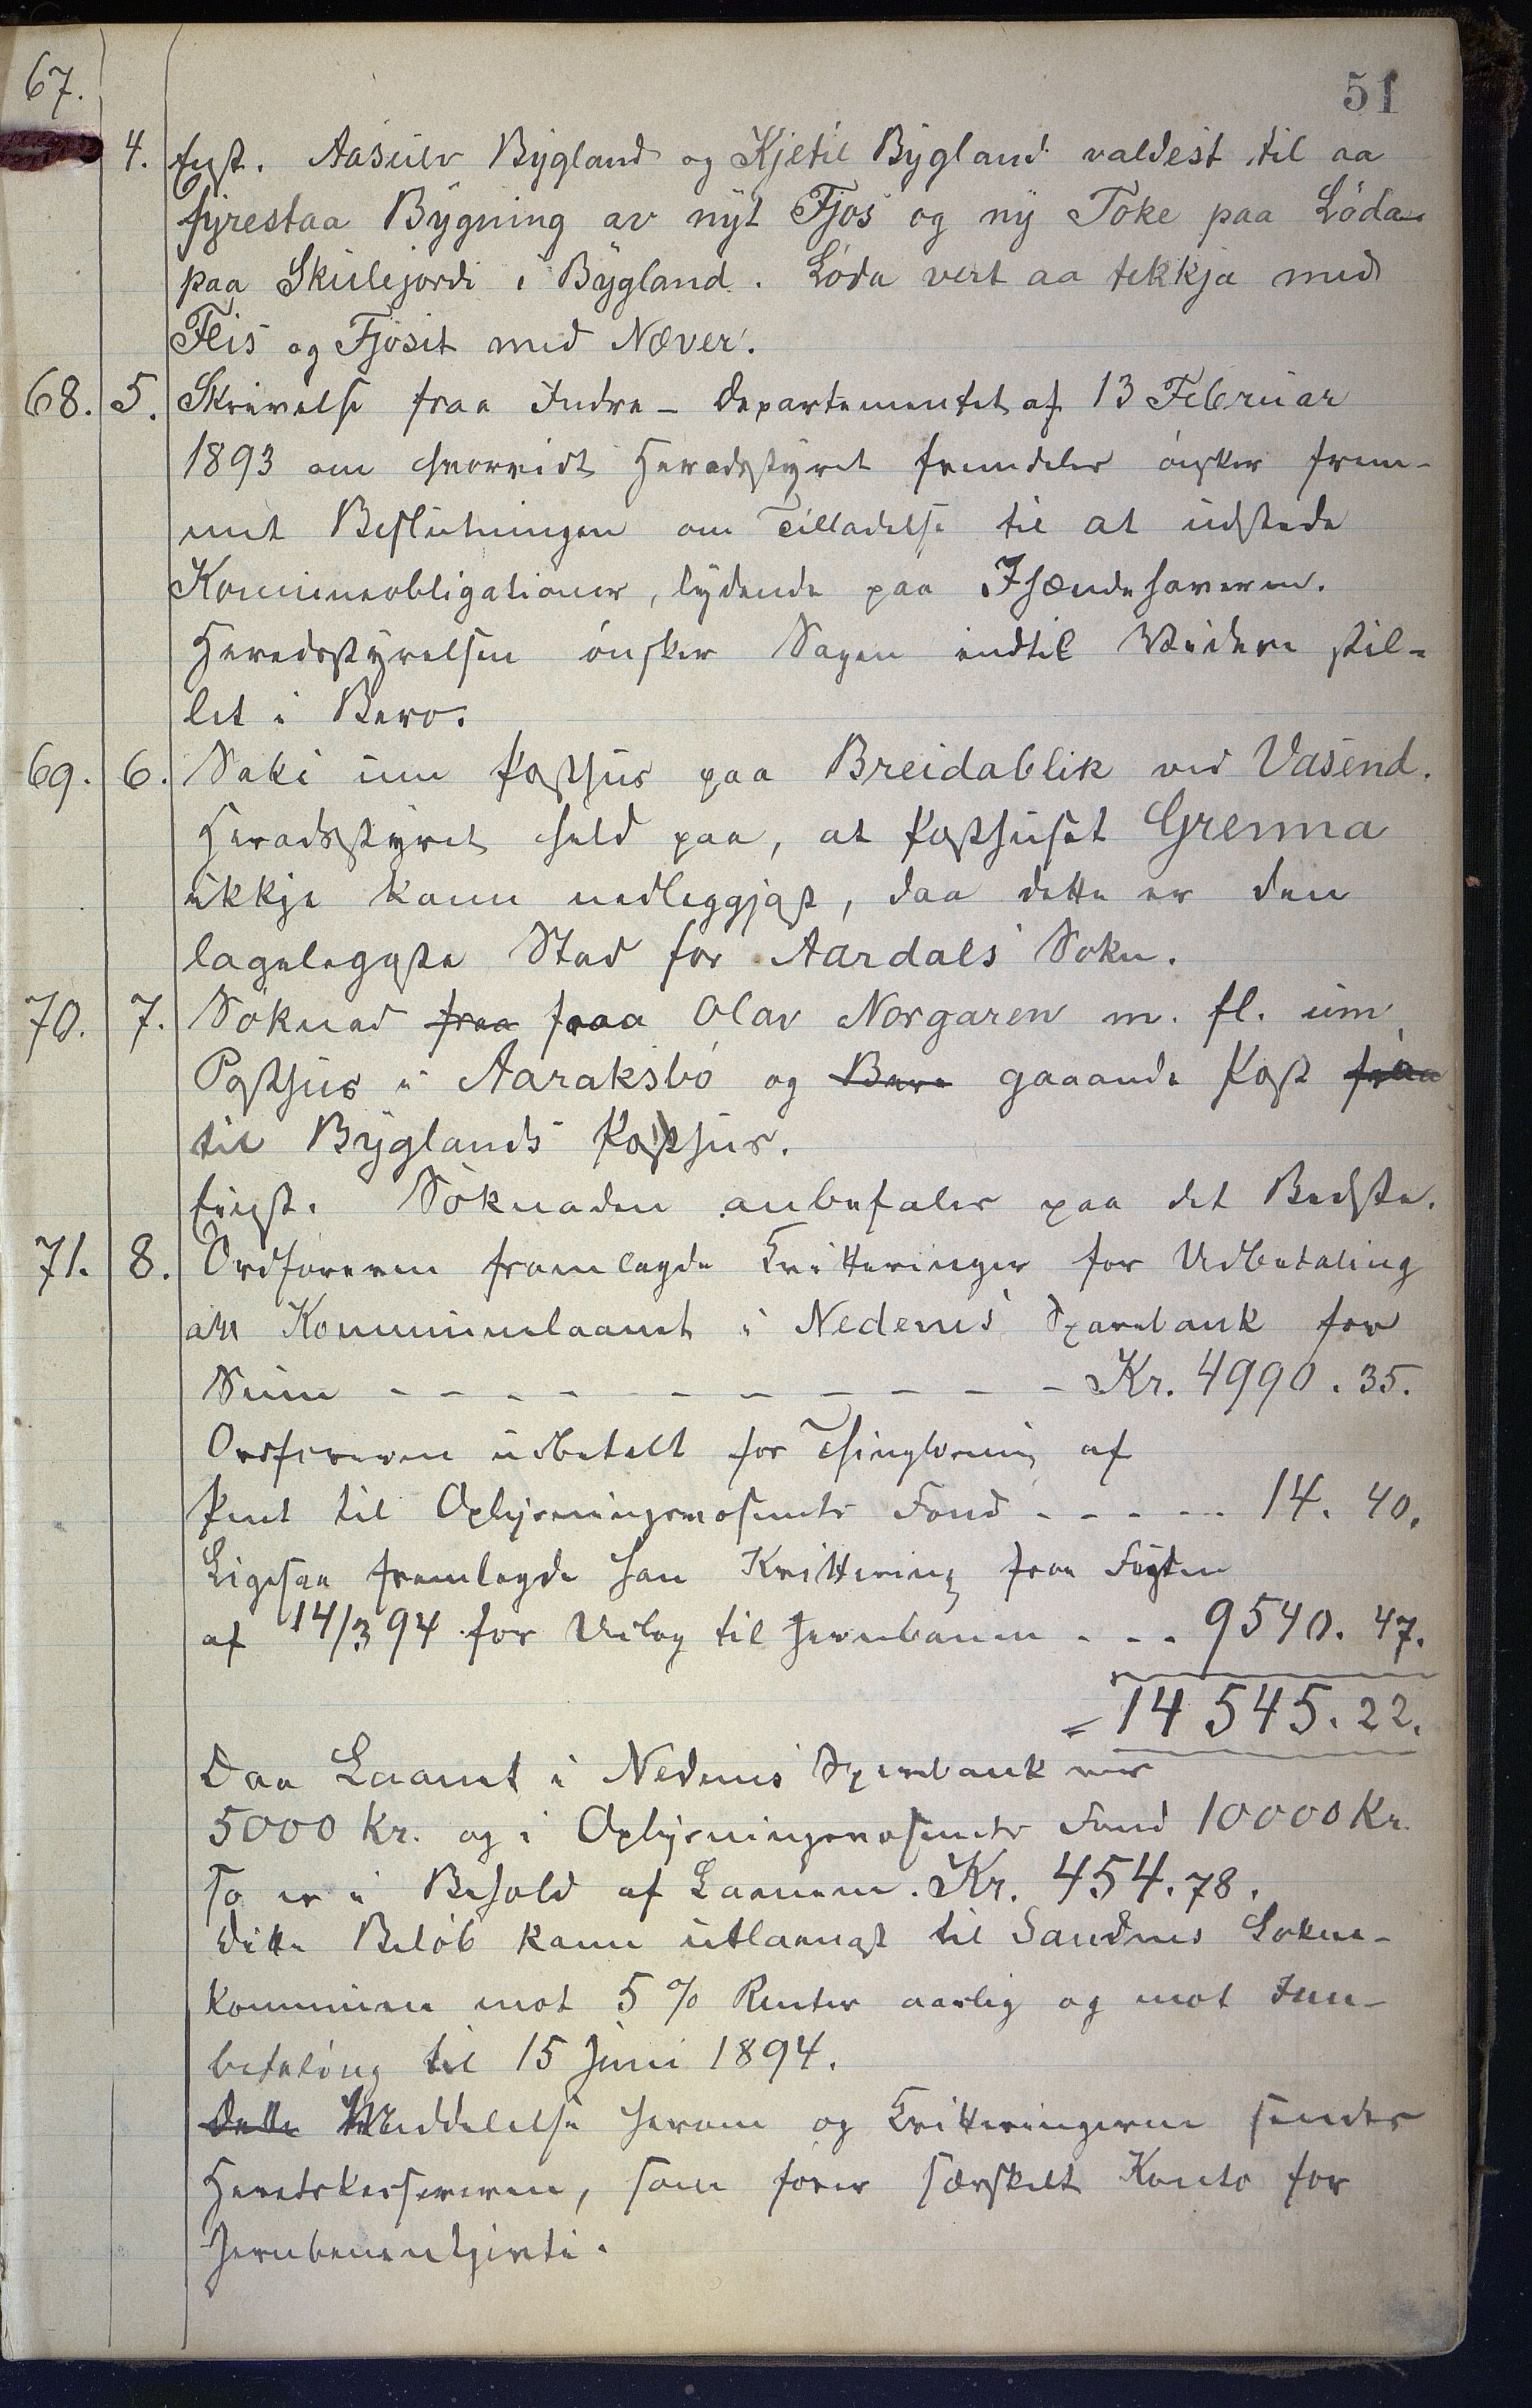 51
67.
4. Aasulv Bygland og Kjetil Bygland valdest til aa
fyrestaa Bygning av nyt Fjos og ny Toke paa Lóda
paa Skulejordi i Bygland. Lóda vert aa tekkja med
Fleis og Fjosit med Næver.
68. 5. Skrivelse fraa Indre-Departementet af 13 Februar
1893 om hvorvidt Heradsstyret fremdeles ónsker frem-
met Beslutningen om Tilladelse til at udstede
Kommuneobligationer, lydende paa Ihændehaveren.
Heredsstyrelsen ónsker Sagen indtil Videre stil-
let i Bero.
69. 6. Saki um Posthus paa Breidablik ved Vasend.
Heradsstyret held paa, at Posthuset Grenna
ikkje kann nedleggjast, daa dette er den
lageleggste Stad for Aardals Sokn.
70. 7. Sóknad fraa fraa Olav Norgaren m. fl. um
Posthus i Aaraksbó og gaaande Post fraa
til Byglands Posthus.
Sóknaden anbefales paa det Bedste.
71. 8. Ordfóreren framlagde Kvitteringer for Udbetaling
av Kommunelaanet i Nedenes Sparebank for
Sum - - - - - - - - - - Kr. 4990.35.
Ordfóreren udbetalt for Thinglesning af
Pant til Oplysningsvæsenets Fond - - - - - 14. 40.
Ligesaa framlagde han Kvittering fraa Fogden
af 14/3 94 for Utlog til Jernbanen - - - 9540. 47.
= 14 545. 22.
Daa Laanet i Nedenes Sparebank var
5000 Kr. og i Oplysningsvæsenets Fond 10000 Kr.
so er i Behold af Laanene. Kr. 454.78.
Dette Belób kann utlaanast til Sandnes Sokne-
kommune mot 5 % Renter aarlig og mot Inn-
betaling til 15 Juni 1894.
Dette Meddelelse herom og Kvitteringerne sendes
Heredskassereren, som fórer særskilt Konto for